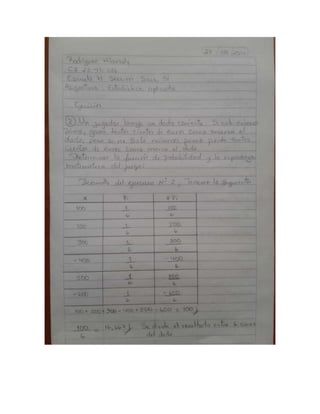 Rodríguez Marioly
Escuela
Asignatura: Estadística Aplicada
Ejercicio
② Un jugador lanza un dado corriente. Si sale número
primo, gana tantos cientos de euros como marca el
dado, pero si no sale número primo, pierde tantos
cientos de euros como marca el dado.
Determinar la función de probabilidad y la esperanza
matemática del juego.
Desarrollo del ejercicio N° 2, Tenemos lo siguiente:
x
100 1/6 100/6
200 1/6 200/6
300 1/6 300/6
-400 1/6 -400/6
500 1/6 500/6
-600 1/6 -600/6
100 + 200 + 300 - 400 + 500 - 600 = 100
100/6 = 16,667 Se divide el resultado entre 6 caras
del dado